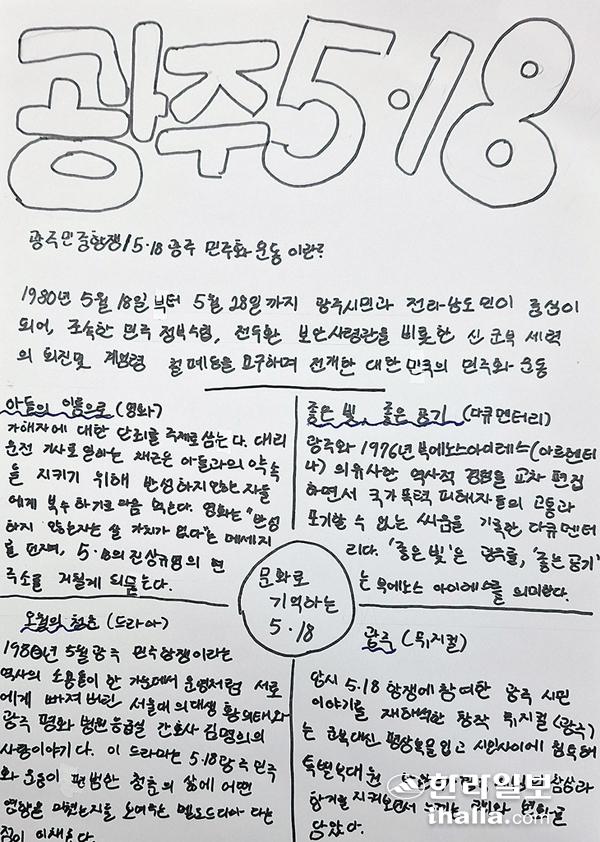 광주 5·18
광주민중항쟁/5·18 광주 민주화 운동 이란?
1980년 5월 18일부터 5월 28일까지 광주시민과 전라남도민이 중심이
되어, 조속한 민주 정부수립, 전두환 보안사령관을 비롯한 신 군부 세력
의 퇴진및 계엄령 철폐등을 요구하며 전개한 대한민국의 민주화 운동
아들의 이름으로 (영화)
가해자에 대한 단죄를 주제로 삼는다. 대리
운전 기사로 일하는 채근은 아들과의 약속
을 지키기 위해 반성하지 않는 자들
에게 복수 하기로 마음 먹는다. 영화는 "반성
하지 않은 자는 살 가치가 없다"는 메세지
를 던지며, 5·18의 진상규명의 현
주소를 거칠게 되묻는다.
좋은 빛, 좋은 공기 (다큐멘터리)
광주와 1976년 부에노스아이레스(아르헨티
나)의 유사한 역사적 경험을 교차 편집
하면서 국가폭력 피해자들의 고통과
포기할 수 없는 싸움을 기록한 다큐멘터
리다. '좋은 빛'은 광주를, '좋은 공기'
는 부에노스 아이레스를 의미한다.
문화로
기억하는
5·18
오월의 청춘 (드라마)
1980년 5월 광주 민주항쟁이라는
역사의 소용돌이 한 가운데서 운명처럼 서로
에게 빠져버린 서울대 의대생 황희태와
광주 평화 병원 응급실 간호사 김명희의
사랑이야기 다. 이 드라마는 5·18 광주 민주
화 운동이 평범한 청춘의 삶에 어떤
영향을 미쳤는지를 보여주는 멜로드라마 다는
점이 이채롭다.
광주 (뮤지컬)
당시 5·18 항쟁에 참여한 광주 시민
이야기를 재해석한 창작 뮤지컬 (광주)
는 군복대신 평상복을 입고 시민사이에 침투해
특별부대원
항거를 지켜보면서 느끼는 고뇌와 변화를
담았다.
한라일보
ihalla.com